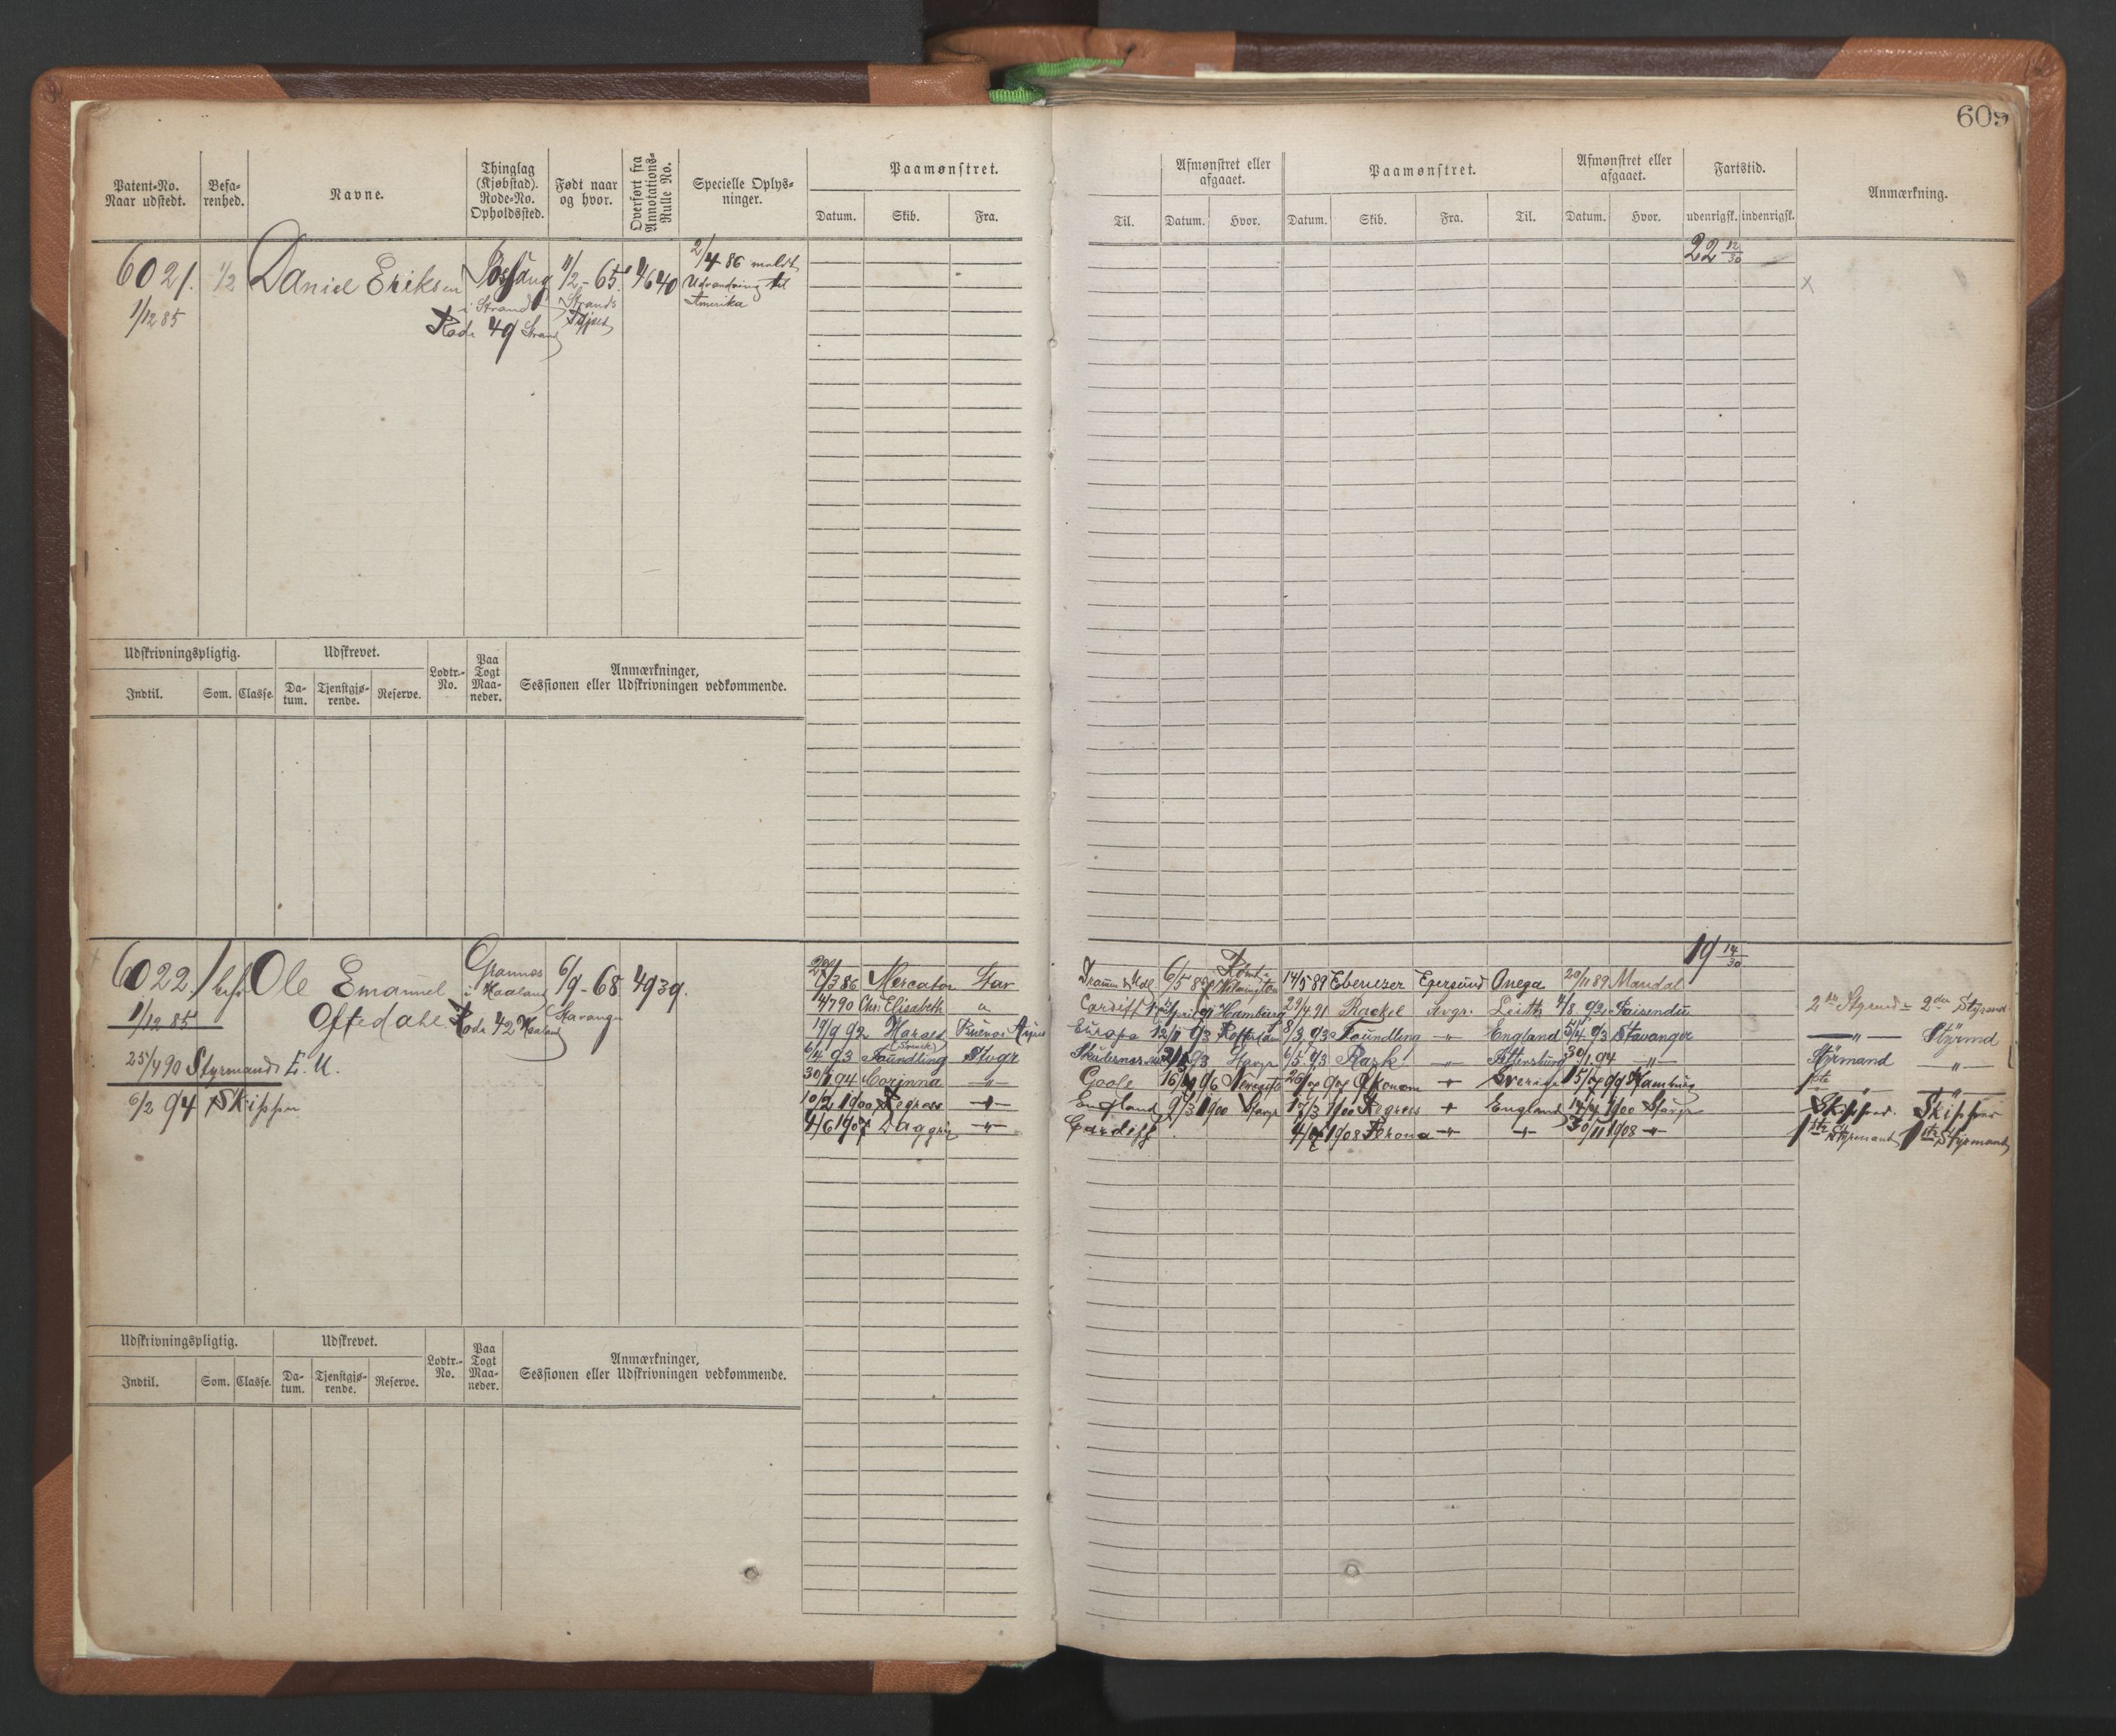 609
Patent-No. Naar udstedt.
Befa-renhed.
Navne.
Thinglag (Kjøbstad). Rode-No. Opholdssted.
Født naar og hvor.
Overført fra Annotations-Rulle No.
Specielle Oplys-ninger.
Paamønstret.
Datum. Skib. Fra.
Til.
Afmønstret eller afgaaet.
Datum. Hvor.
Paamønstret.
Datum. Skib. Fra. Til.
Afmønstret eller afgaaet.
Datum. Hvor.
Fartstid.
udenrigsk. indenrigsk.
Anmærkning.
6021. 1/2 Daniel Eriksen 11/2-65 4640 2/4 86 meldt
22 12/30
i Strand Strands Udvandring til
1/12 85 Rode 49 Strand Amerika
Udskrivningspligtig. Udskrevet. Lodtr.-No. Paa Togt Maa-neder. Anmærkninger, Sessionen eller Udskrivningen vedkommende.
Indtil. Som. Classe. Da-tum. Tjenstgjø-rende. Reserve.
19 14/30
6022 Ole Emanuel Grannes 6/9-68 4939.
i Haaland
1/12 85 Oftedahl Rode 42 Haaland Stavanger
25/4 90 Styrmands E. U.
6/2 94 Skipper
3 86 Mercator Stav 6/5 Wilmington 14/5 89 Ebenezer Egersund Onega 20/11 89 Mandal
14/7 90 Chr: Elisabeth " Cardiff April 91 Hamburg 29/4 91 Rackel Svgr. Leith 4/8 92 Paisendu 2den Styrmd 2den Styrmd
19/9 92 Buenos Ayres Europa 12/1 93 8/3 93 Foundling —"— England 5/4 93 Stavanger —"— Styrmd
6/4 93 Foundling Stvgr 93 Stavgr 6/5 93 Rask —"— 30/1 94 —"— Styrmand —"—
30/1 94 Corinna —"— Goole 96 Økonom Sverige 99 Hamburg 1ste
10/2 1900 Regress —"— England 9/3 1900 Stavgr 17/3 1900 Regress England 1900 Stavgr Skipper. Skipper
4/6 1907 —"— Cardiff 1908 Verona —"— 30/11 1908 —"— 1ste Styrmand 1ste Styrmand
Udskrivningspligtig. Udskrevet. Lodtr.-No. Paa Togt Maa-neder. Anmærkninger, Sessionen eller Udskrivningen vedkommende.
Indtil. Som. Classe. Da-tum. Tjenstgjø-rende. Reserve.